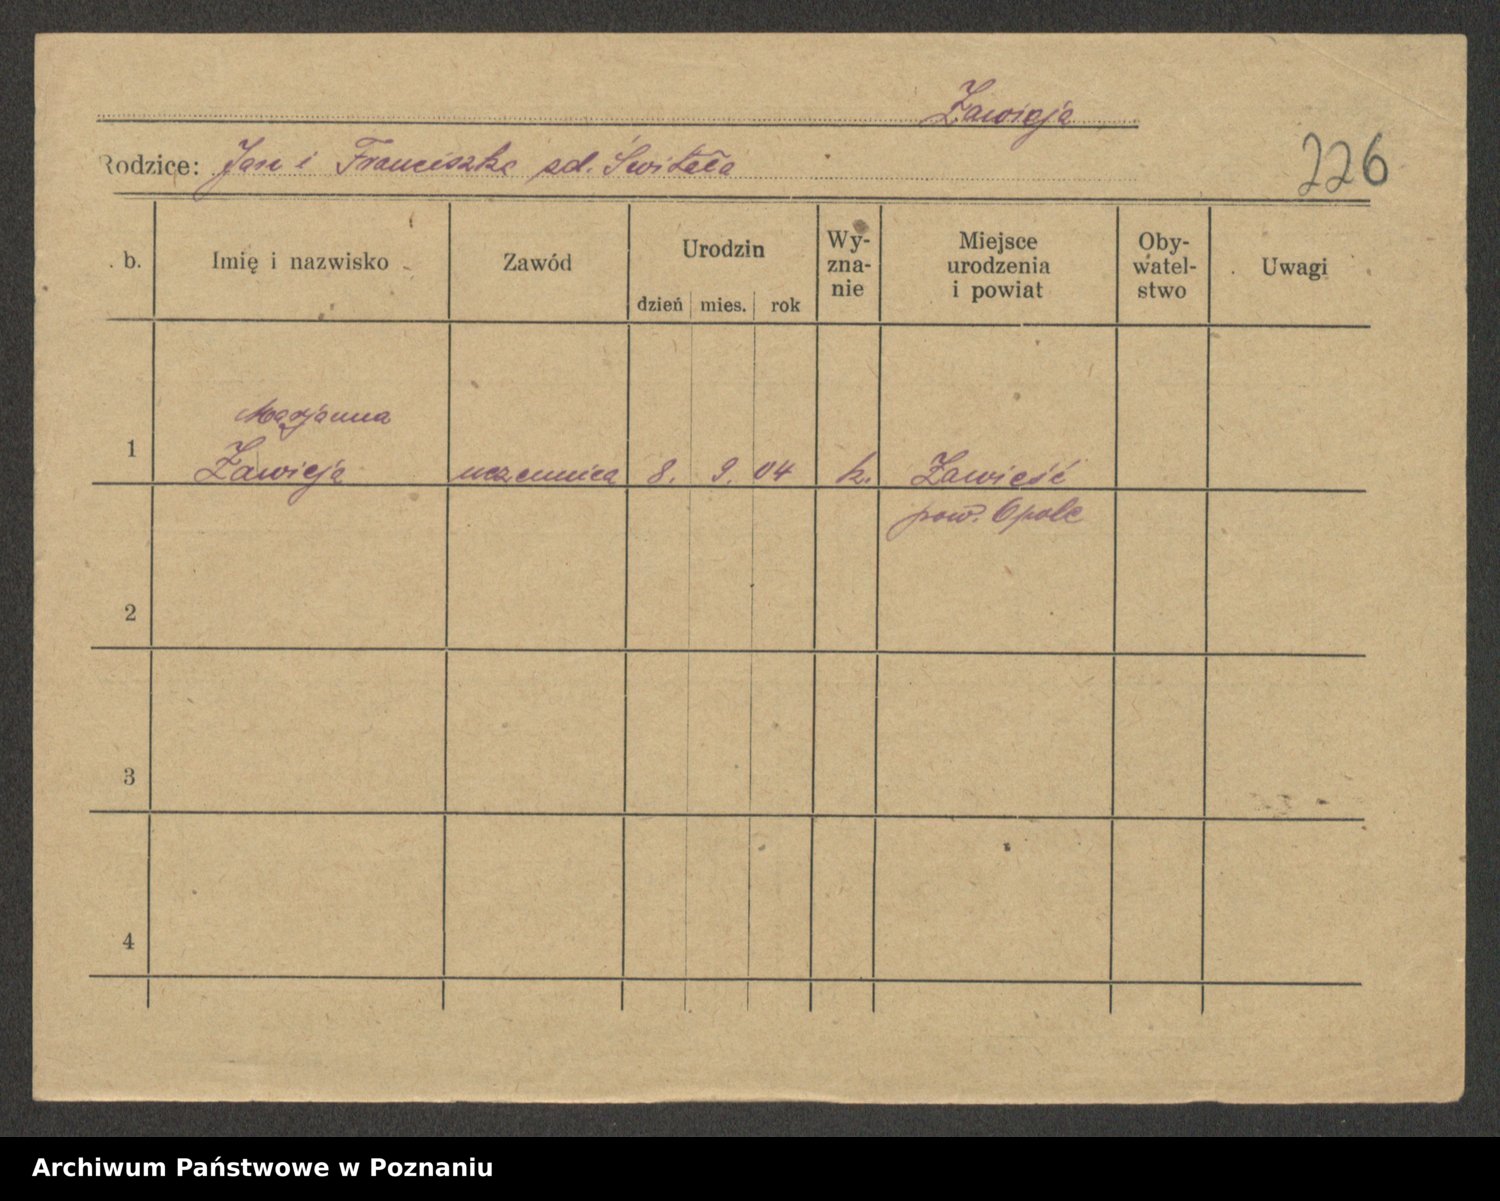 Zawieja
Rodzice: Jan i Franciszka zd. Świtała
226
. b. Imię i nazwisko Zawód Urodzin dzień mies. rok Wy-zna-nie Miejsce urodzenia i powiat Oby-watel-stwo Uwagi
Marjanna
1 Zawieja uczennica 8. 9. 04 k. Zawiść
pow. Opole
2
3
4
Archiwum Państwowe w Poznaniu